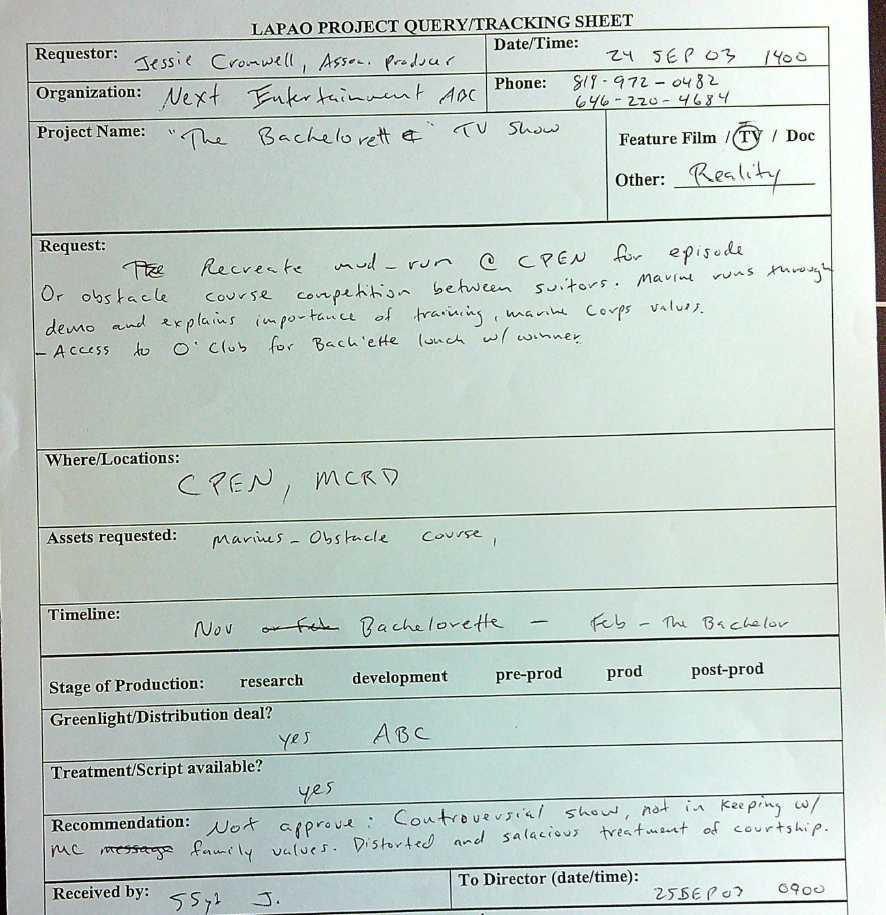 LAPAO PROJECT QUERY/TRACKING SHEET
Requestor: Jessie Cromwell, Assoc. Producer
Date/Time: 24 SEP 03 1400
Organization: Next Entertainment ABC
Phone: 819-972-0482
646-220-4684
Project Name: "The Bachelorette" TV Show
Feature Film / TV / Doc
Other: Reality
Request:
Recreate mud-run @ CPEN for episode
Or obstacle course competition between suitors. Marine runs through
demo and explains importance of training, marine Corps values.
- Access to O'Club for Bach'ette lunch w/ winner.
Where/Locations:
CPEN, MCRD
Assets requested: Marines - Obstacle course,
Timeline:
Nov or Feb Bachelorette - Feb - The Bachelor
Stage of Production: research development pre-prod prod post-prod
Greenlight/Distribution deal?
yes ABC
Treatment/Script available?
yes
Recommendation: Not approve: Controversial show, not in keeping w/
MC message family values. Distorted and salacious treatment of courtship.
Received by: SSgt J.
To Director (date/time):
25SEP03 0900